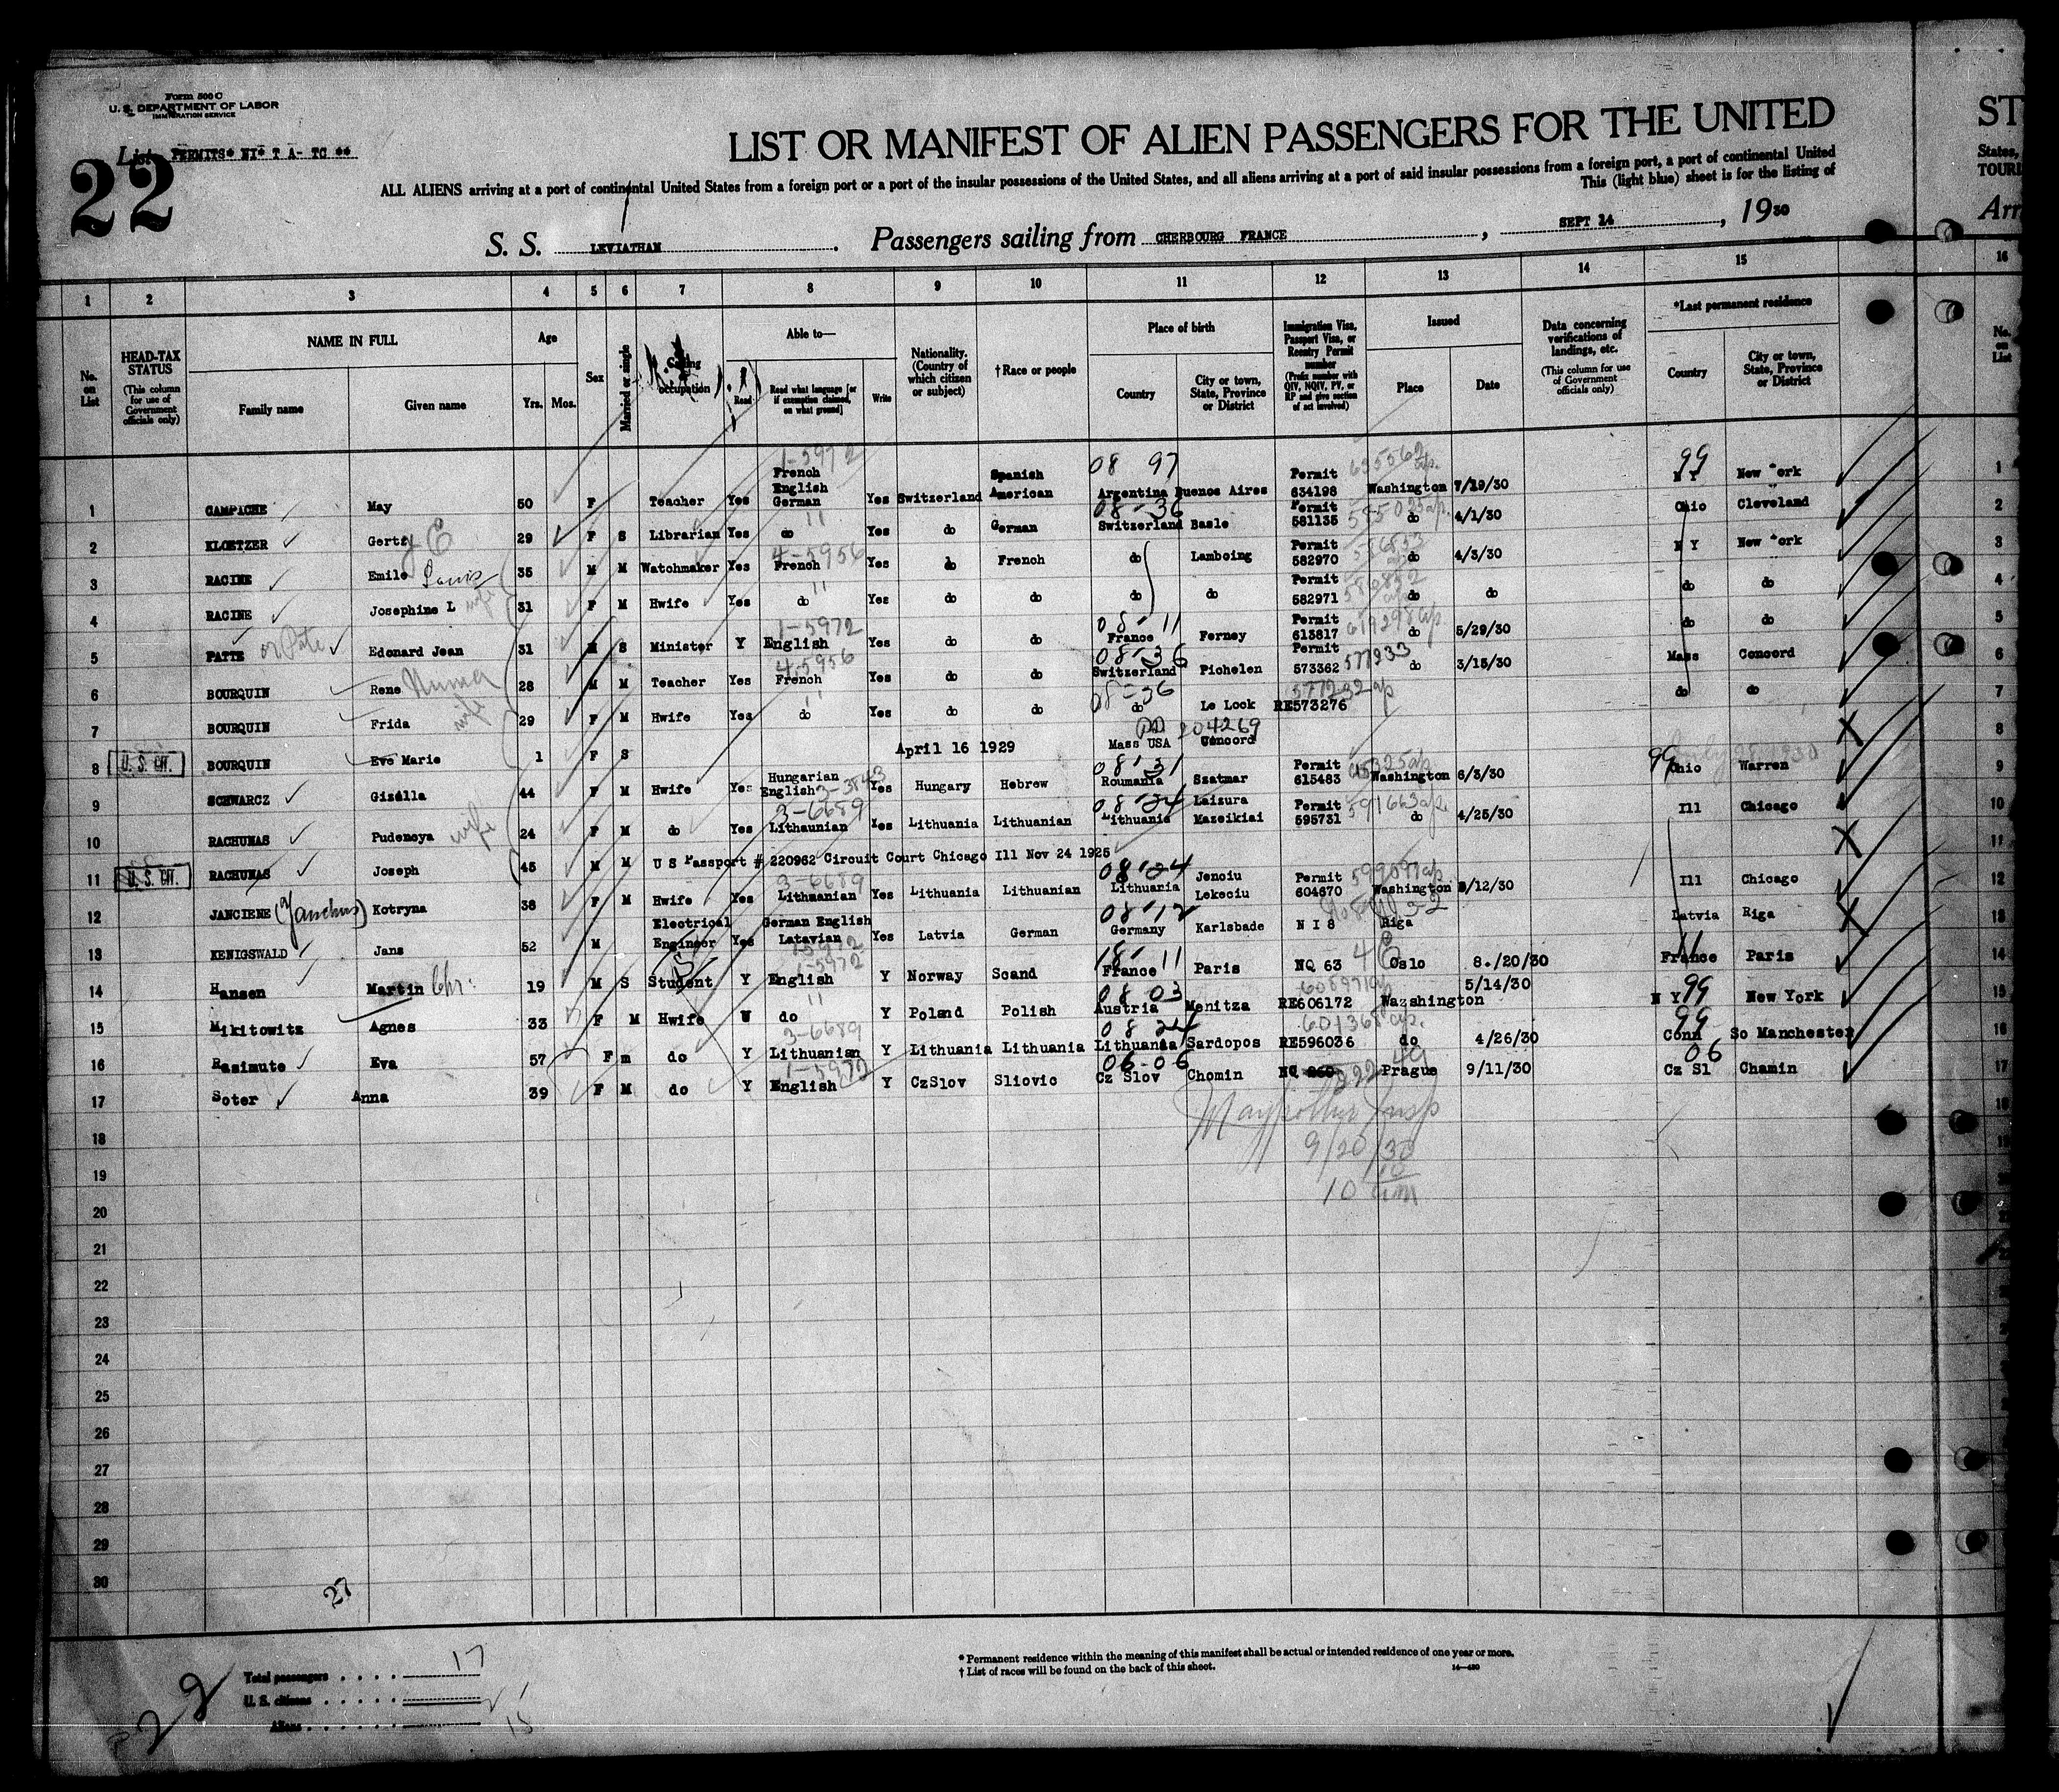 Form 500 C
U. S. DEPARTMENT OF LABOR
IMMIGRATION SERVICE
List PERMITS* NI* T A- TC **
22
LIST OR MANIFEST OF ALIEN PASSENGERS FOR THE UNITED
ST
ALL ALIENS arriving at a port of continental United States from a foreign port or a part of the insular possessions of the United States, and all aliens arriving at a port of said insular possessions from a foreign port, a port of continental United
States,
This (light blue) sheet is for the listing of
TOURI
S. S. LEVIATHAN . Passengers sailing from CHERBOURG FRANCE , SEPT 14 , 1930
Arr
1 2 3 4 5 6 7 8 9 10 11 12 13 14 15 16
No. on List
HEAD-TAX STATUS
(This column for use of Government officials only)
NAME IN FULL
Family name Given name
Age
Yrs. Mos.
Sex
Married or single
occupation
Able to—
Read
Read what language [or if exemption claimed, on what ground]
Write
Nationality. (Country of which citizen or subject)
† Race or people
Place of birth
Country
City or town, State, Province or District
Immigration Visa, Passport Visa, or Reentry Permit number
(Prefix number with QIV, NQIV, PV, or RP and give section of act involved)
Issued
Place Date
Data concerning verifications of landings, etc.
(This column for use of Government officials only)
*Last permanent residence
Country
City or town, State, Province or District
No. on List
1 CAMPACHE May 50 F Teacher Yes French English German Yes Switzerland Spanish American Argentina Buenos Aires Permit 634198 Washington 7/19/30 N Y New York 1
1-5972 08 97 99
2 KLOETZER Gerty E 29 F S Librarian Yes do Yes do German Switzerland Basle Permit 581135 do 4/1/30 Ohio Cleveland 2
08-36
3 RACINE Emile Louis 35 M M Watchmaker Yes French Yes do French do Lamboing Permit 582970 do 4/3/30 N Y New York 3
4-5956
4 RACINE Josephine L wife 31 F M Hwife Yes do Yes do do do do Permit 582971 do do do do 4
5 PATTE or Pate Edonard Jean 31 M S Minister Y English Yes do do France Ferney Permit 613817 do 5/29/30 do do 5
1-5972 08-11
6 BOURQUIN Rene Numa 28 M M Teacher Yes French Yes do do Switzerland Pichelen Permit 573362 577933 do 3/15/30 Mass Concord 6
4-5956 08-36
7 BOURQUIN Frida wife 29 F M Hwife Yes do Yes do do do Le Lock RE573276 do do 7
08-36
8 U. S. CIT. BOURQUIN Eve Marie 1 F S April 16 1929 Mass USA Concord 8
204269
9 SCHWARCZ Gizella 44 F M Hwife Yes Hungarian English Yes Hungary Hebrew Roumania Szatmar Permit 615483 Washington 6/3/30 Ohio Warren 9
3-3843 08-31 99
10 RACHUNAS Pudencya wife 24 F M do Yes Lithaunian Yes Lithuania Lithuanian Lithuania Laisura Mazeikiai Permit 595731 do 4/25/30 Ill Chicago 10
3-6689 08-24
11 U. S. CIT. RACHUNAS Joseph 45 M M U S Passport # 220962 Circuit Court Chicago Ill Nov 24 1925 11
12 JANCIENE (Yanchus) Kotryna 38 F M Hwife Yes Lithuanian Yes Lithuania Lithuanian Lithuania Jenciu Lekeciu Permit 604670 Washington /12/30 Ill Chicago 12
3-6689 08-24
13 KENIGSWALD Jans 52 M Electrical Engineer Yes German English Latavian Yes Latvia German Germany Karlsbade N I 8 Riga Latvia Riga 13
08-12
14 Hansen Martin Chr. 19 M S Student Y English Y Norway Scand France Paris NQ 63 Oslo 8./20/30 France Paris 14
1-5972 11
15 Mikitowitz Agnes 33 F M Hwife do Y Poland Polish Austria Monitza RE606172 Wazshington 5/14/30 N Y New York 15
08 03 99
16 Rasimute Eva 57 F m do Y Lithuanian Y Lithuania Lithuania Lithuania Sardopos RE596036 do 4/26/30 Conn So Manchester 16
3-6689 08 24 601368 99
17 Soter Anna 39 F M do Y English Y CzSlov Sliovic Cz Slov Chomin NQ Prague 9/11/30 Cz Sl Chamin 17
1-5972 06-06 06
18
19
20
21
22
23
24
25
26
27
28
29
30
9/20/30
10
27
Total passengers . . . . 17
U. S. citizens . . . . .
Aliens . . . . . 15
* Permanent residence within the meaning of this manifest shall be actual or intended residence of one year or more.
† List of races will be found on the back of this sheet.
14—430